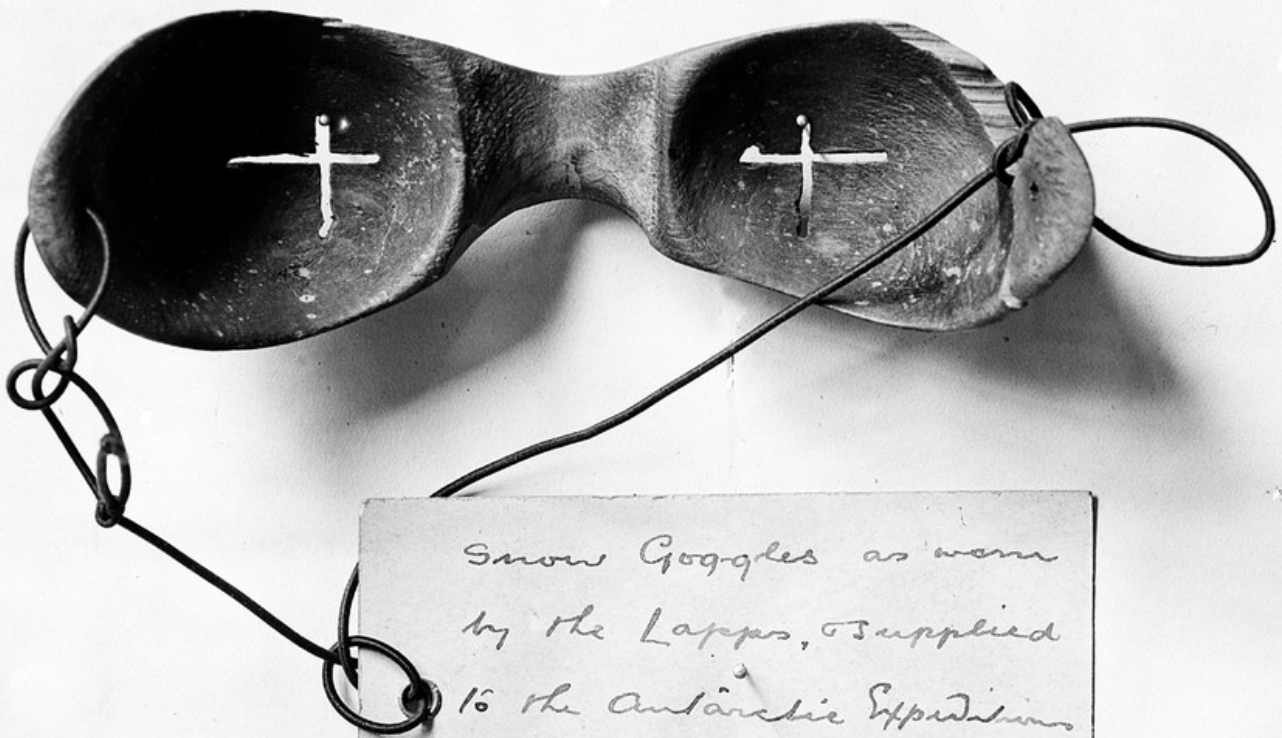 Snow Goggles as worn
by the Lapps, & supplied
to the Antarctic Expeditions